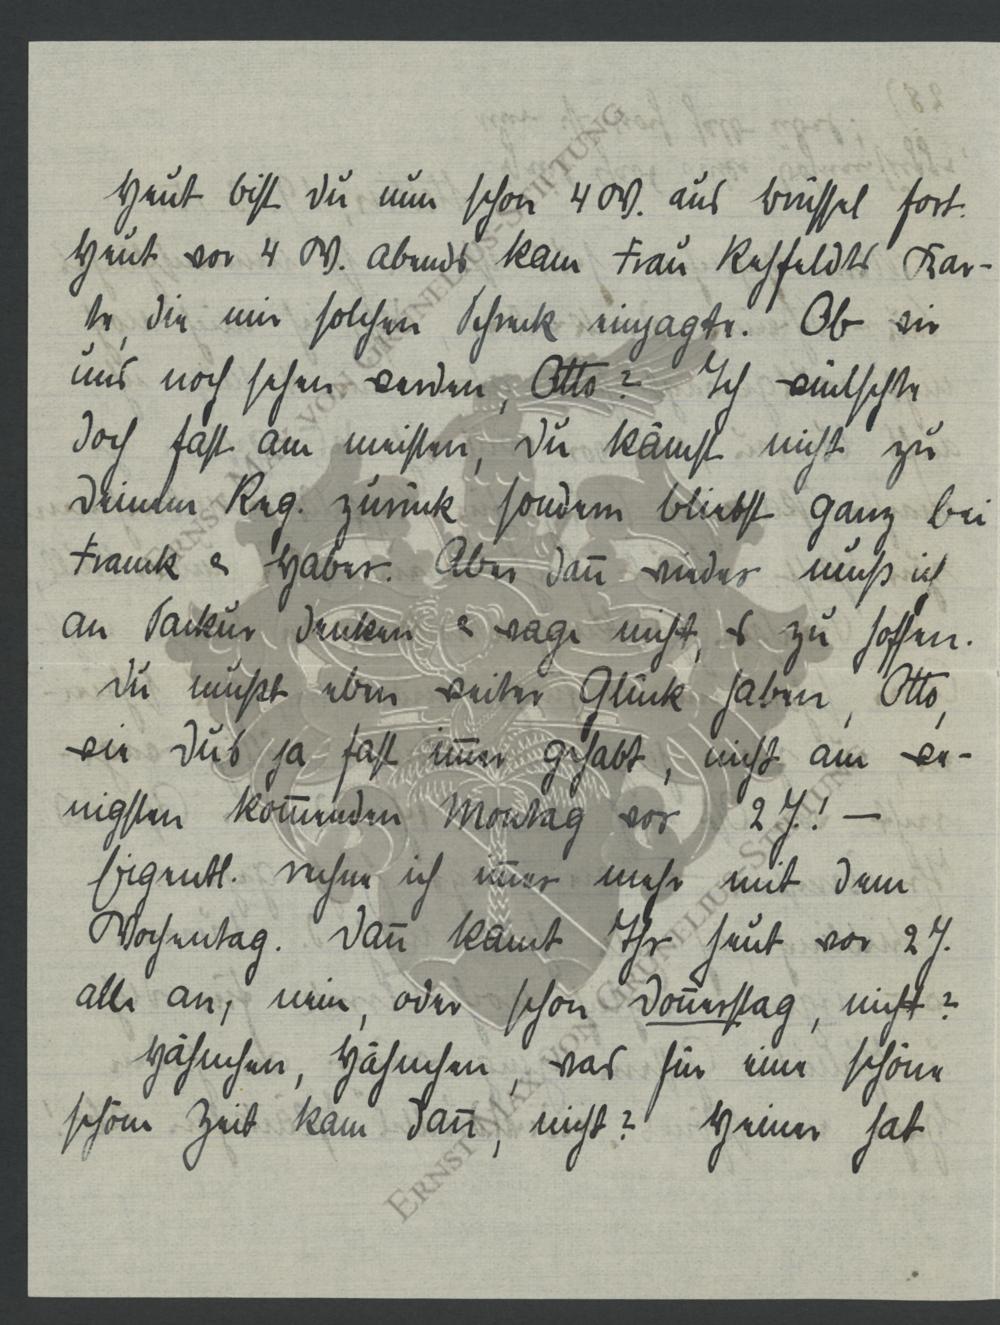 Heut bist Du nun schon 4 W. aus Brüssel fort.
Heut vor 4 W. abends kam Frau Rehfeldts Kar-
te, die mir solchen Schreck einjagte. Ob wir
uns noch sehen werden, Otto? Ich wünschte
doch fast am meisten, Du kämst nicht zu
Deinem Reg. zurück sondern bliebst ganz bei
Franck & Haber. Aber dañ wieder muß ich
an Sackur denken & wage nicht, es zu hoffen.
Du mußt eben weiter Glück haben, Otto,
wie Dus ja fast im̄er gehabt, nicht am we-
nigsten kom̄enden Montag vor 2 J.! —
Eigentl. rechne ich im̄er mehr mit dem
Wochentag. Dañ kamt Ihr heut vor 2 J.
alle an, nein, oder schon Doñerstag, nicht?
Hähnchen, Hähnchen, was für eine schöne
schöne Zeit kam dañ, nicht? Heiner hat
ERNST-MAX VON GRUNELIUS-STIFTUNG
ERNST-MAX VON GRUNELIUS-STIFTUNG